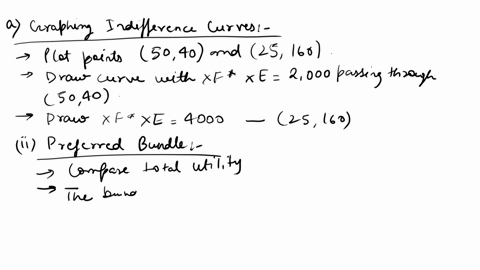 a) Graphing Indifference Curves:-
→ Plot points (50,40) and (25, 160)
→ Draw curve with xF* xE = 2,000 passing through
(50,40).
→ Draw xF* xE = 4000 — (25, 160)
(ii) Preferred Bundle:-
→ Compare total utility
→ The bund